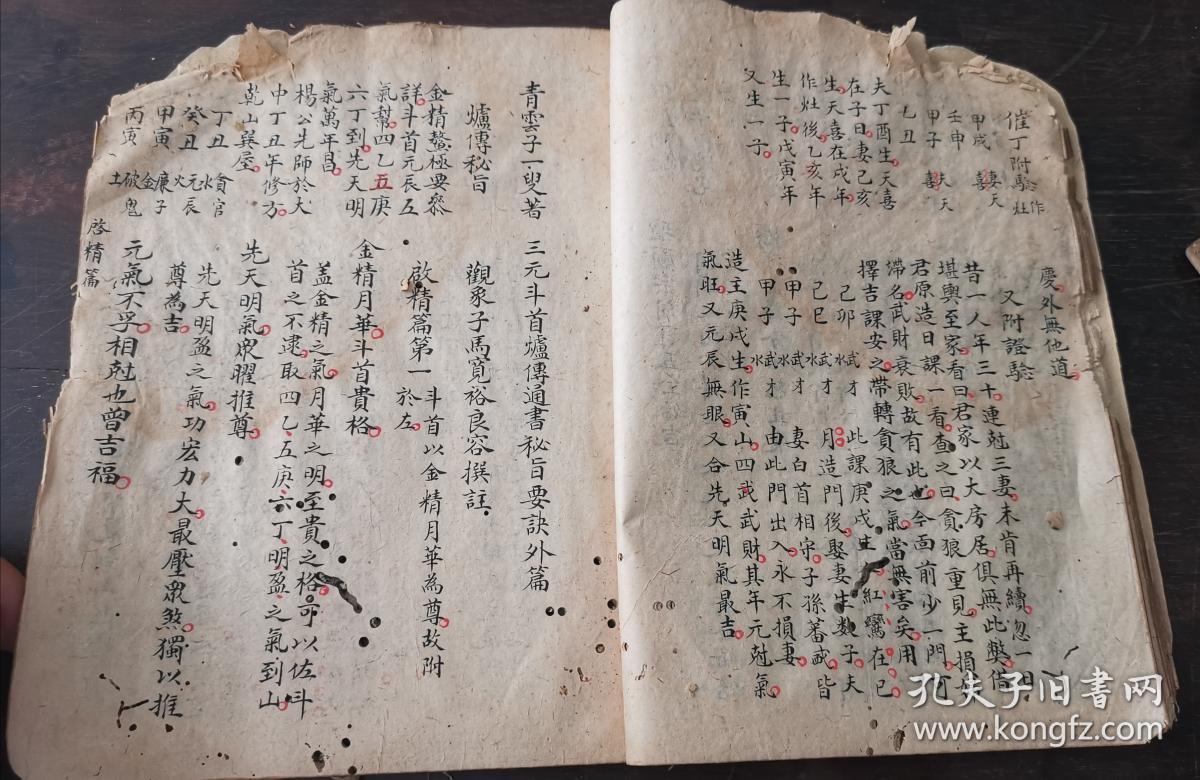 慶外無他道
又附證驗
昔一人年三十連尅三妻未肯再續忽一日
堪輿至家看曰君家以大房居俱無此獘借
君原造日課一看查之曰貪狼重見主損妻
帶名武財衰敗故有此也今面前少一門可
擇吉課安之帶轉貪狼之氣當無害矣用
己卯 武才水 此課庚戌生人紅鸞在巳
己巳 武才水 月造門後娶妻生数子夫
甲子 武才水 妻白首相守子孫蕃盛皆
甲子 武才水 由此門出入永不損妻
造主庚戌生作寅山四武武財其年元尅氣
氣旺又元辰無眼又合先天明氣最吉
催丁附驗 作灶
甲戌 妻天喜
壬申
甲子 夫天喜
乙丑
夫丁酉生天喜
在子日妻己亥
生天喜在戌年
作灶後乙亥年
生一子戊寅年
又生一子
青雲子一叟著 三元斗首爐傳通書秘旨要訣外篇
爐傳秘旨
觀象子馬寬裕良容撰註
啟精篇第一 斗首以金精月華為尊故附於左
金精月華斗首貴格
蓋金精之氣月華之明至貴之格可以佐斗
首之不逮取四乙五庚六丁明盈之氣到山
先天明氣眾曜推尊
先天明盈之氣功宏力大最壓眾煞獨以推
尊為吉
元氣不孚相尅也曾吉福
金精鰲極要叅
詳斗首元辰五
氣幫四乙五庚
六丁到先天明
氣萬年昌
楊公先師於大
中丁丑年修方
乾山巽屋
丁丑 水貪官
癸丑 火元辰
甲寅 金廉子
丙寅 土破鬼
啓精篇
孔夫子旧书网
www.kongfz.com